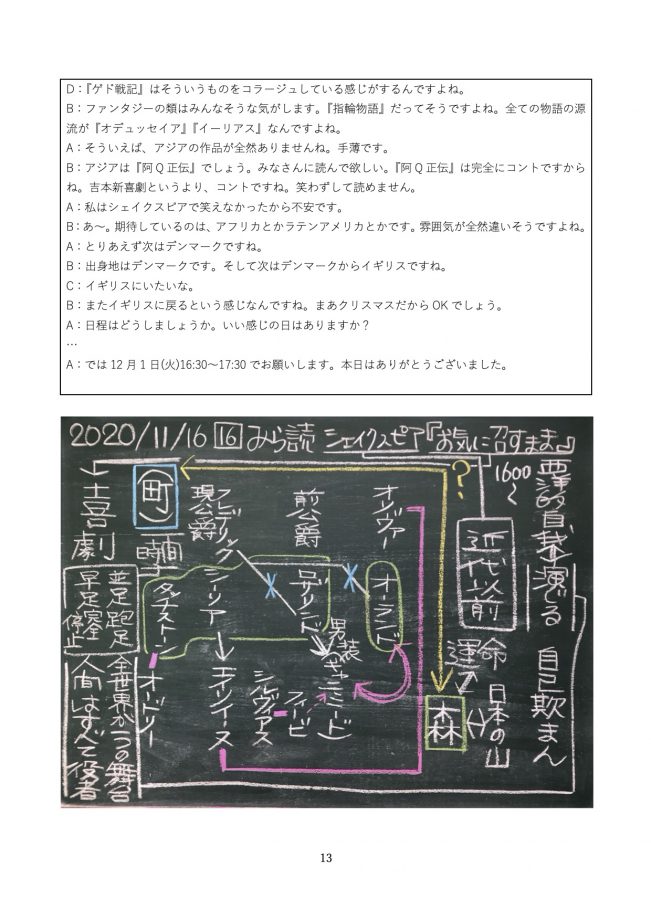 D：『ゲド戦記』はそういうものをコラージュしている感じがするんですよね。
B：ファンタジーの類はみんなそうな気がします。『指輪物語』だってそうですよね。全ての物語の源
流が『オデュッセイア』『イーリアス』なんですよね。
A：そういえば、アジアの作品が全然ありませんね。手薄です。
B：アジアは『阿Q正伝』でしょう。みなさんに読んで欲しい。『阿Q正伝』は完全にコントですから
ね。吉本新喜劇というより、コントですね。笑わずして読めません。
A：私はシェイクスピアで笑えなかったから不安です。
B：あ～。期待しているのは、アフリカとかラテンアメリカとかです。雰囲気が全然違いそうですよね。
A：とりあえず次はデンマークですね。
B：出身地はデンマークです。そして次はデンマークからイギリスですね。
C：イギリスにいたいな。
B：またイギリスに戻るという感じなんですね。まあクリスマスだからOKでしょう。
A：日程はどうしましょうか。いい感じの日はありますか？
…
A：では12月1日(火)16:30～17:30でお願いします。本日はありがとうございました。
2020/11/16 16 みら読 シェイクスピア『お気に召すまま』
1600～
？
自我 演じる 自己欺まん
近代以前
運命
日本の山
森
オリヴァー
オーランド
前公爵
ロザリンド
男装
ギャニミード
フィービ
シルヴィアス
フレデリック
現公爵
シーリア
エイリイーナ
(町)
時間
タッチストーン
オードリー
喜劇
並足 跑足
早足 完全停止
全世界が一つの舞台
人間はすべて役者
13